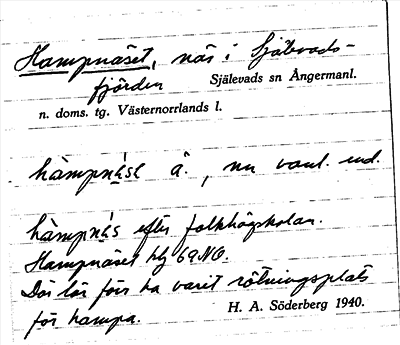 Hampnäset, näs i Själevads-
fjärden Själevads sn Ångermanl.
n. doms. tg. Västernorrlands l.
hàmpnä́se â. , nu vanl. end.
hàmpnä́s efter folkhögskolan.
Hampnäset hly 69NO.
Där lär förr ha varit rötningsplats
för hampa. H. A. Söderberg 1940.